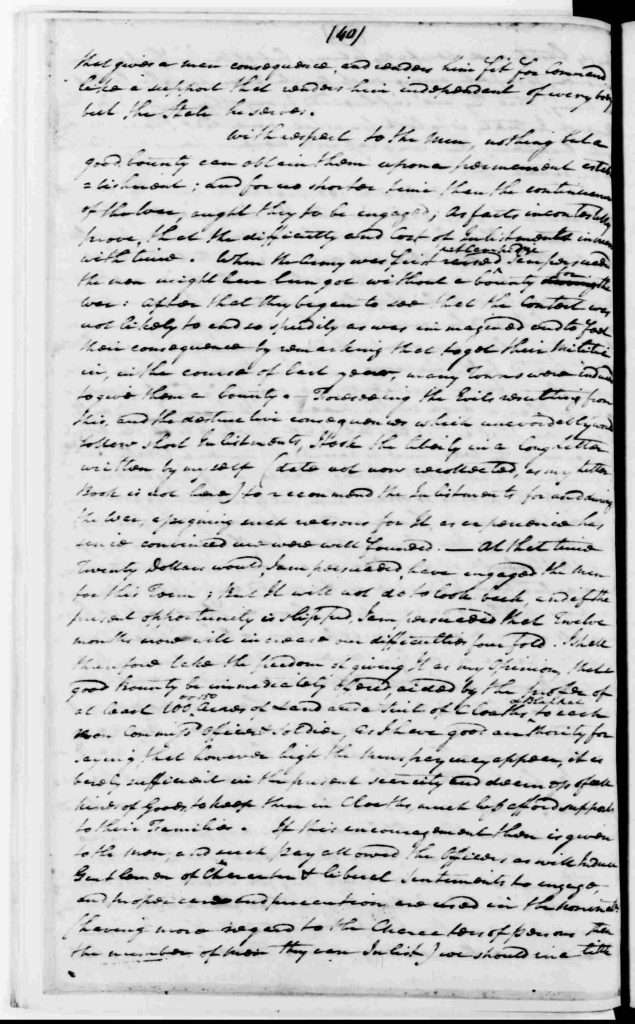 (40)
that gives a man consequence, and renders him fit for Command
like a support that renders him independent of every body
but the State he serves.
With respect to the Men, nothing but a
good bounty can obtain them upon a permanent estab
=lishment; and for no shorter time than the continuance
of the War, ought they to be engaged; As facts incontestibly
prove, that the difficulty and Cost of Inlistments increase
with time. When the Army was first raised at Cambridge, I am persuaded
the men might have been got without a bounty for the
War: after that they began to see that the Contest was
not likely to end so speedily as was immagined and to feel
their consequence by remarking that to get their Militia
in, in the course of last year, many Towns were induced
to give them a bounty. – Foreseeing the Evils resulting from
this, and the destructive consequences which unavoidably would
follow short Inlistments, I took the liberty in a long Letter
written by myself (date not now recollected, as my Letter
Book is not here) to recommend the Inlistments for and during
the War, assigning such reasons for it, as experience has
since convinced me were well founded. — At that time
Twenty Dollars would, I am persuaded, have engaged the Men
for this Term; But it will not do to look back, and if the
present opportunity is slipped, I am persuaded that Twelve
months more will increase our difficulties four fold. I shall
therefore take the freedom of giving it as my Opinion, that a
good Bounty be immediately offered, aided by the proffer of
at least 100 or 150 Acres of Land and a Suit of Cloaths & Blanket to each
non Commd Officer & Soldier, as I have good authority for
saying, that however high the Mens pay may appear, it is
barely sufficient in the present scarcity and dearness of all
kinds of Goods, to keep them in Cloaths, much less afford support
to their Families. If this encouragement then is given
to the Men, and such Pay allowed the Officers as will induce
Gentlemen of Character & liberal Sentiments to engage,
and proper care and precaution are used in the nominatn
(having more regard to the Characters of persons than
the number of Men they can Inlist,) we should in a little